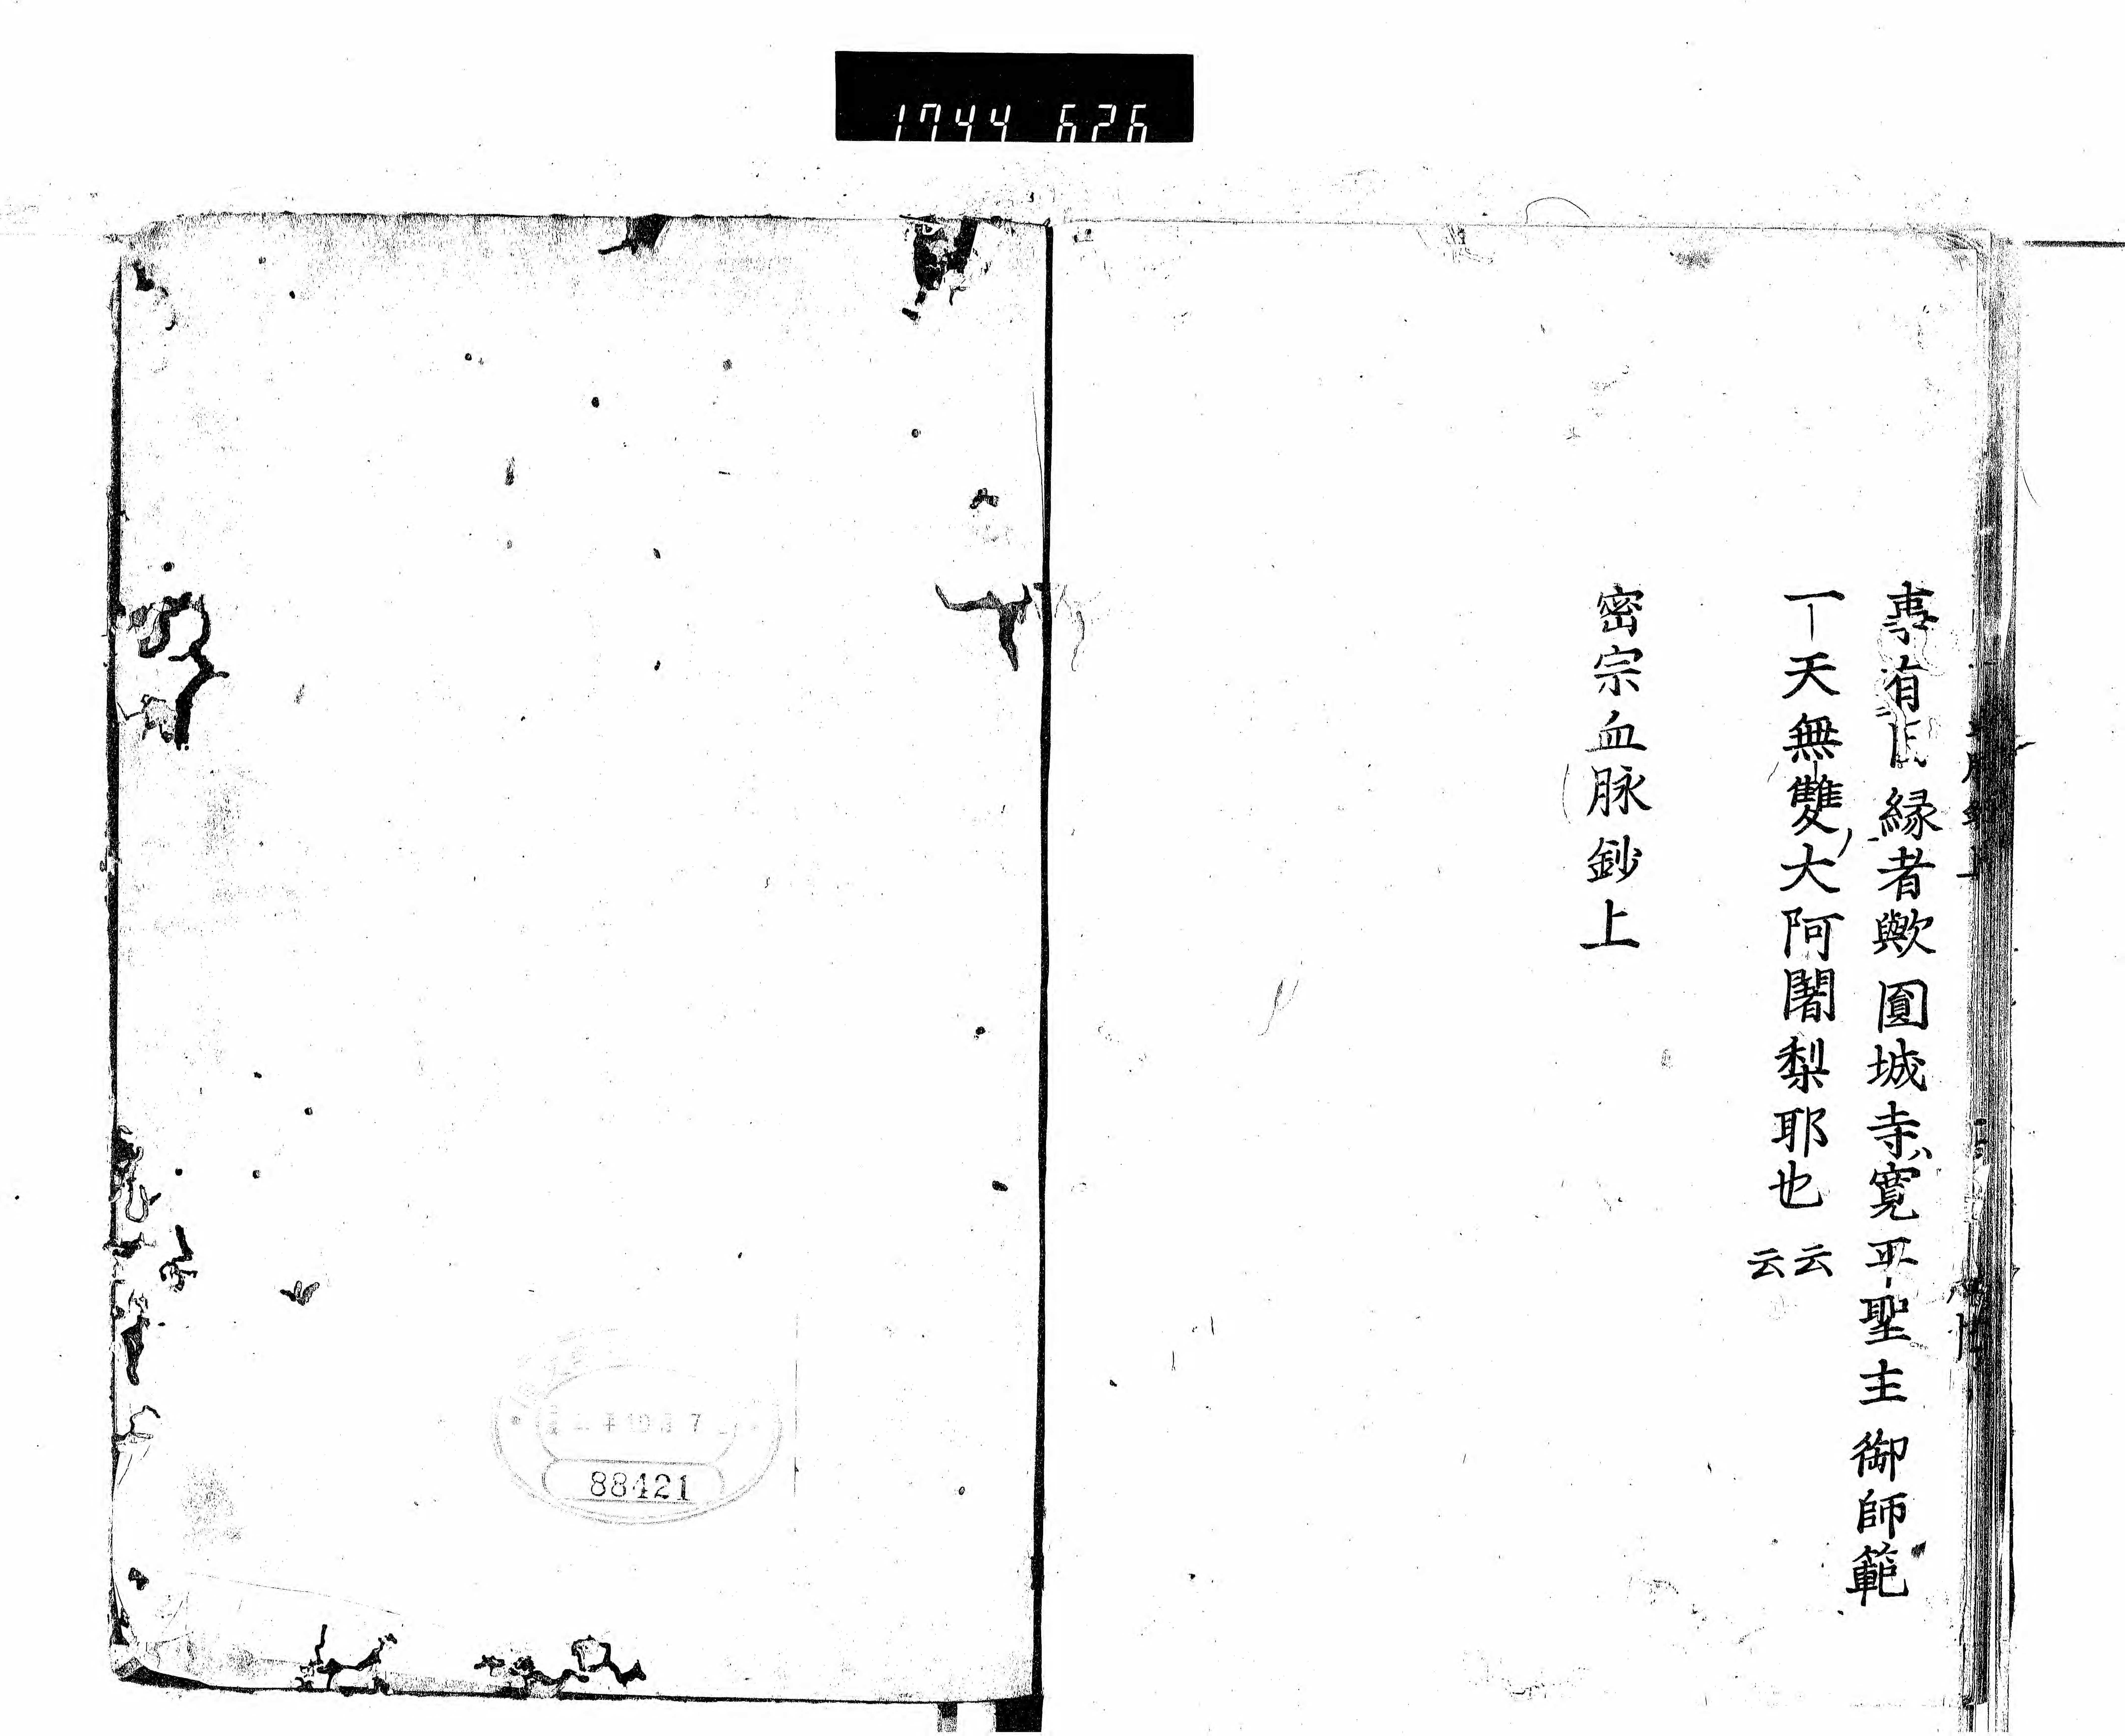 1744 626
事有因縁者歟圓城寺寛平聖主御師範
一天無雙大阿闍梨耶也云云
密宗血脉鈔上
88421